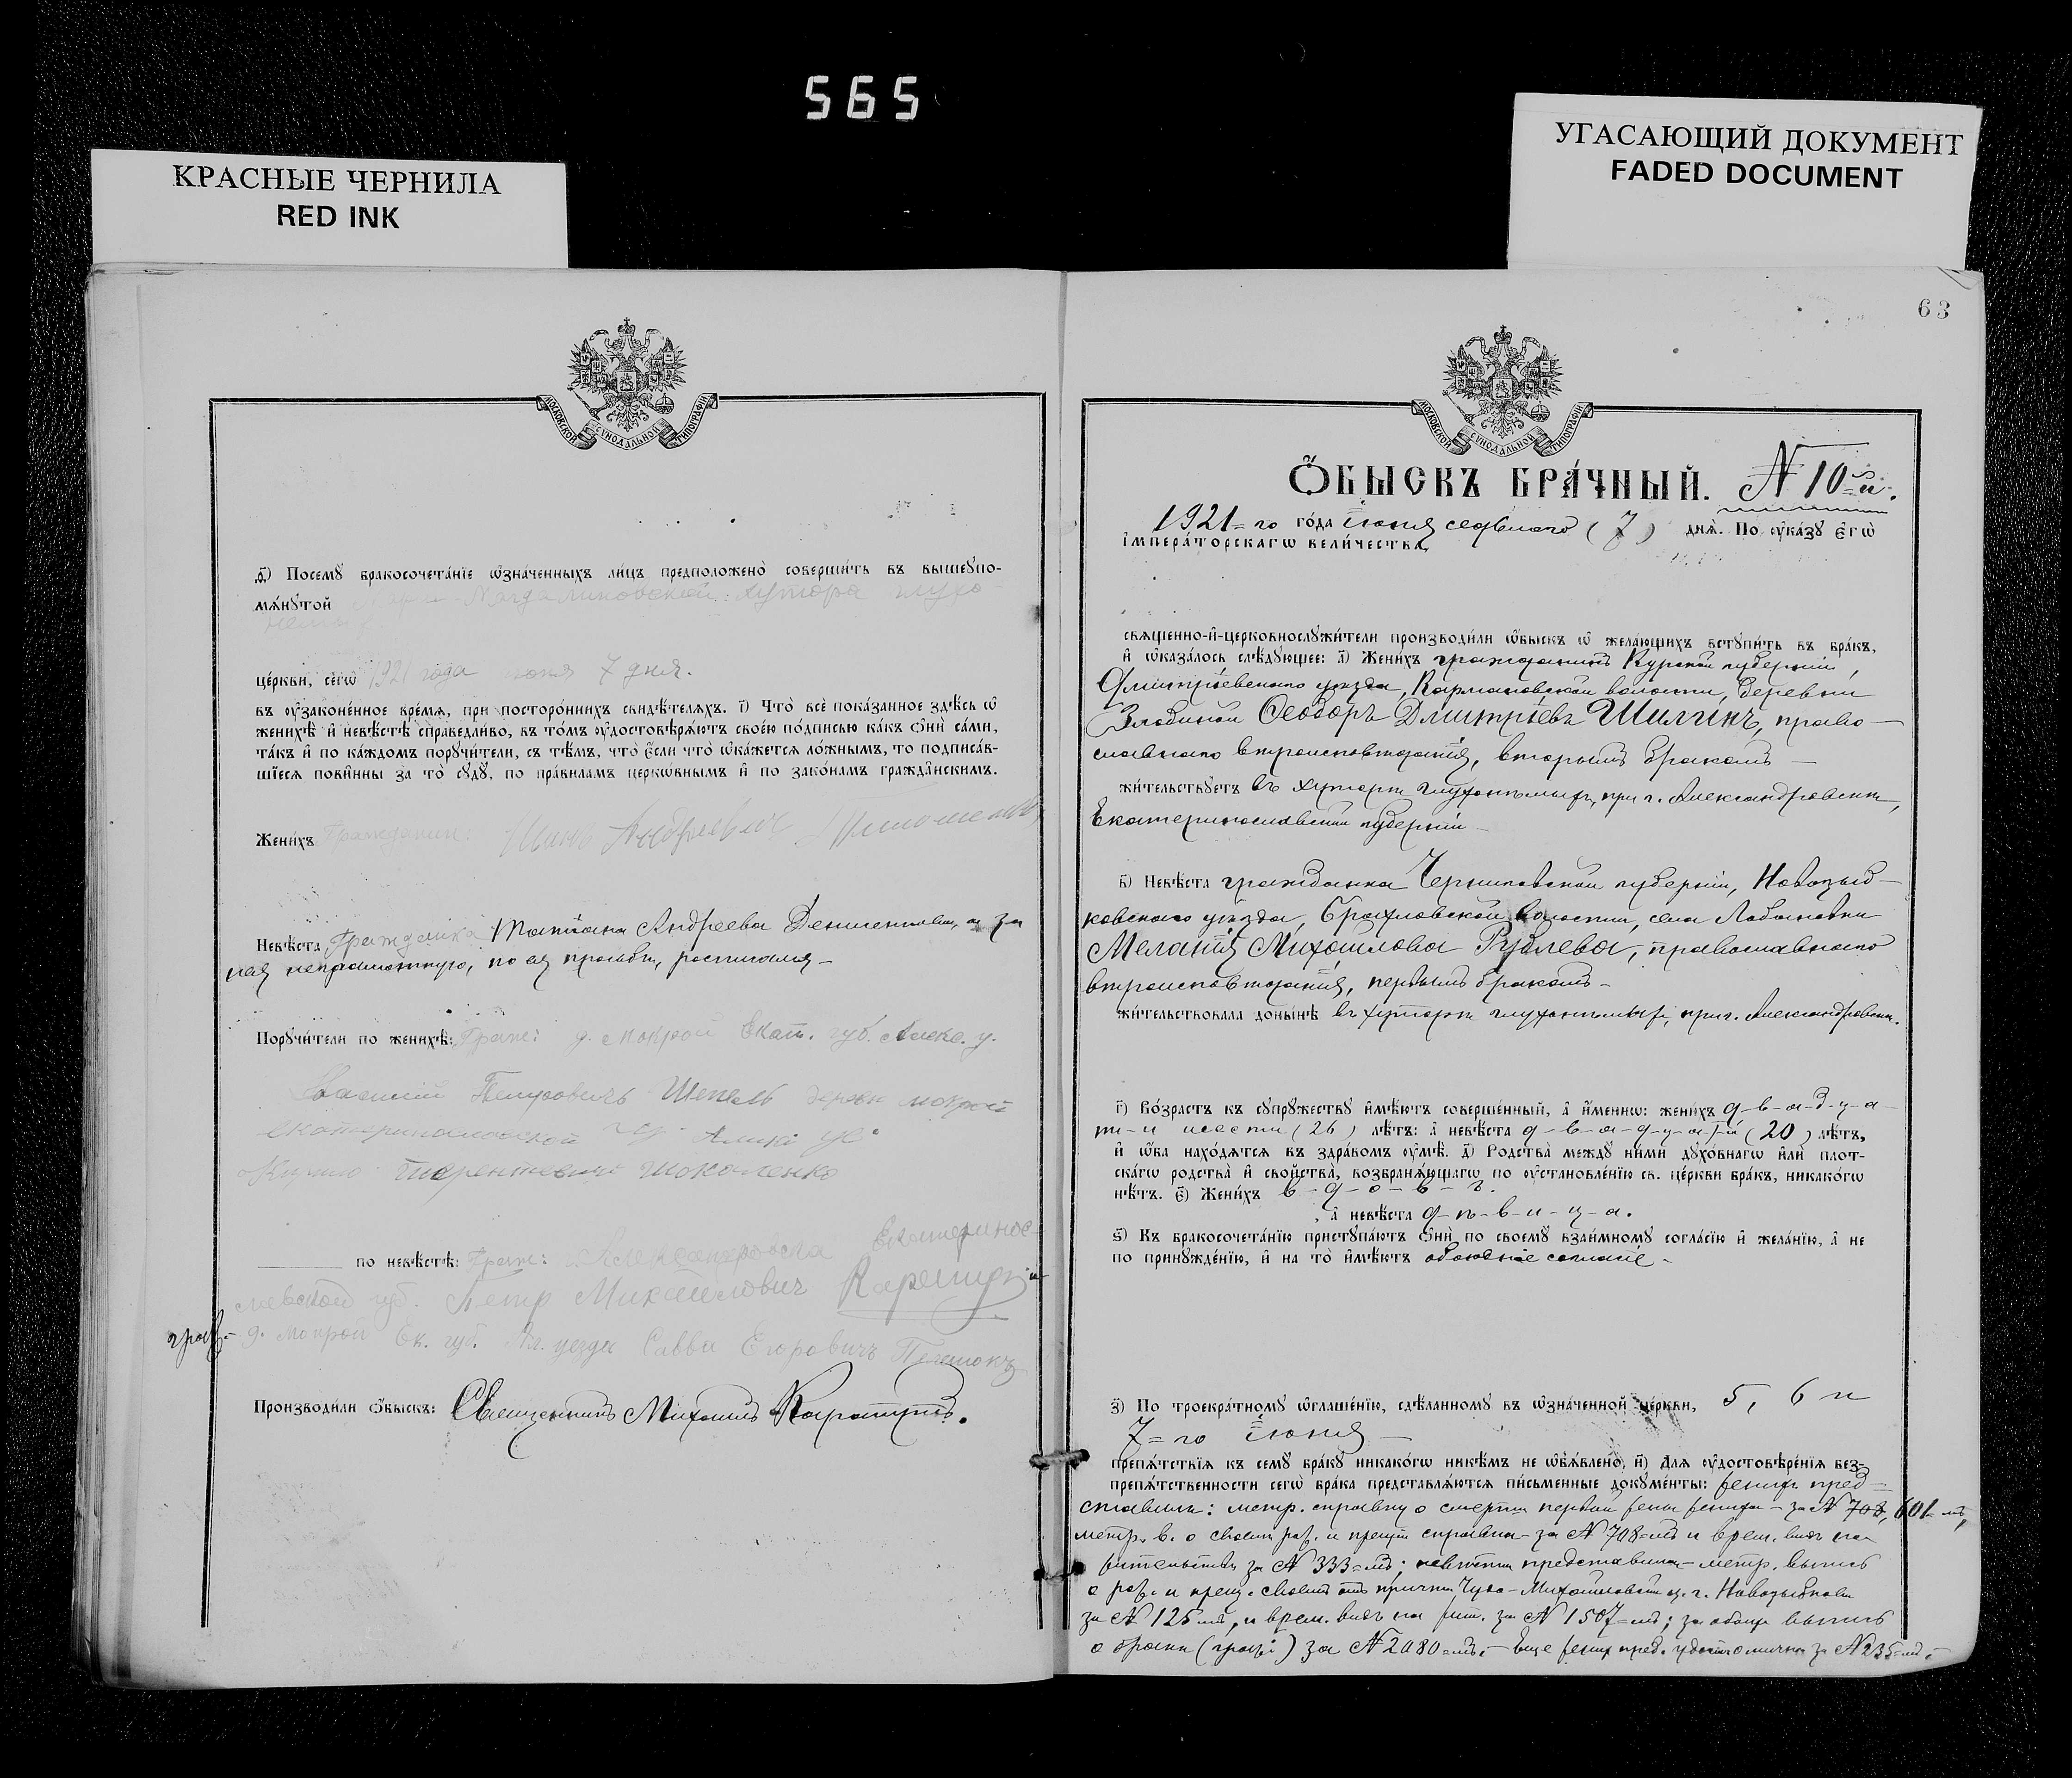 565
КРАСНЫЕ ЧЕРНИЛА
RED INK
УГАСАЮЩИЙ ДОКУМЕНТ
FADED DOCUMENT
МОСКОВСКОЙ СѴНОДАЛЬНОЙ ТИПОГРАФІИ
д҃) Посемꙋ бракосочета́нїе ѡ҆зна́ченныхъ ли́цъ предположено̀ соверши́ть въ вышеꙋпо-
мѧ́нꙋтой Магдалиновской хутора глухо
немы
це́ркви, сегѡ̀ 1921 года июня 7 дня.
въ ᲂу҆зако́ненное вре́мѧ, при посторо́ннихъ свидѣ́телѧхъ. і҃) Что̀ всѐ пока́занное здѣ́сь ѡ҆
женихѣ̀ и҆ невѣ́стѣ справедли́во, въ то́мъ ᲂу҆достовѣрѧ́ютъ свое́ю по́дписью ка́къ ѻ҆нѝ са́ми,
та́къ и҆ по ка́ждомъ порꙋчи́тели, съ тѣ́мъ, что̀ є҆́сли что̀ ѡ҆ка́жетсѧ ло́жнымъ, то подписа́в-
шїесѧ пови́нны за то̀ сꙋдꙋ̀, по пра́виламъ церкѡ́внымъ и҆ по зако́намъ гражда́нскимъ.
Жени́хъ Гражданин: Андреевич
Невѣ́ста Гражданка Татіана Андреева а за
нея неграмотную, по ея просьбѣ, росписался –
Порꙋчи́тели по женихѣ̀: Граж: д. Мокрой Екат. губ. Алекс. у.
Василий Петрович Шепель дерев. мокрой
екатеринославской губ. Алекс. уе.
Терентьевич
по невѣ́стѣ: Граж: Александровска Екатеринос-
лавской губ. Петр Михайлович
граж- д. Мокрой Ек. губ. Ал. уезда Савва Егорович
Производи́ли ѻ҆́быскъ: Священникъ Михаилъ
63
МОСКОВСКОЙ СѴНОДАЛЬНОЙ ТИПОГРАФІИ
Ѻ҆́БЫСКЪ БРА́ЧНЫЙ. N 10-й.
1921=го го́да іюня седьмого (7) днѧ̀. По ᲂу҆ка́зꙋ є҆гѡ̀
і҆мпера́торскагѡ вели́чества,
свѧще́нно-и҆-церковнослꙋжи́тели производи́ли ѻ҆́быскъ ѡ҆ жела́ющихъ встꙋпи́ть въ бра́къ,
и҆ ѡ҆каза́лось слѣ́дꙋющее: а҃) Жени́хъ гражданинъ Курской губерніи,
Дмитріевскаго уѣзда, Кармановской волости, деревни
Злобиной Ѳеодоръ Дмитріевъ Шилинъ, право-
славнаго вѣроисповѣданія, вторымъ бракомъ –
жи́тельствꙋетъ въ хуторѣ глухонѣмыхъ, при г. Александровскѣ,
Екатеринославской губерніи –
в҃) Невѣ́ста гражданка Черниговской губерніи, Новозыб-
ковскаго уѣзда, волости, села Лобановки
Меланія Михайлова Рублева, православнаго
вѣроисповѣданія, первымъ бракомъ –
жи́тельствовала доны́нѣ въ хуторѣ глухонѣмыхъ, при г. Александровскѣ.
г҃) Во́зрастъ къ сꙋпрꙋ́жествꙋ и҆мѣ́ютъ соверше́нный, а҆ и҆́меннѡ: жени́хъ д-в-а-д-ц-а-
т-и шести (26) лѣ́тъ: а҆ невѣ́ста д-в-а-д-ц-а-т-и (20) лѣ́тъ,
и҆ ѻ҆́ба нахо́дѧтсѧ въ здра́вомъ ᲂу҆мѣ̀. д҃) Родства̀ междꙋ ни́ми дꙋхо́внагѡ и҆лѝ плот-
ска́гѡ родства̀ и҆ сво́йства, возбранѧ́ющагѡ по ᲂу҆становле́нїю св. це́ркви бра́къ, никако́гѡ
нѣ́тъ. є҃) Жени́хъ в-д-о-в-ъ.
, а҆ невѣ́ста д-ѣ-в-и-ц-а.
ѕ҃) Къ бракосочета́нїю пристꙋпа́ютъ ѻ҆нѝ по своемꙋ̀ взаи́мномꙋ согла́сїю и҆ жела́нїю, а҆ не
по принꙋжде́нїю, и҆ на то̀ и҆мѣ́ютъ обоюдное согласіе –
з҃) По троекра́тномꙋ ѡ҆глаше́нїю, сдѣ́ланномꙋ въ ѡ҆зна́ченной це́ркви, 5, 6 и
7=го іюня –
препѧ́тствїѧ къ семꙋ̀ бра́кꙋ никако́гѡ никѣ́мъ не ѡ҆б̾ѧ́влено, и҃) Длѧ ᲂу҆достовѣре́нїѧ без-
препѧ́тственности сегѡ̀ бра́ка представлѧ́ютсѧ пи́сьменные докꙋме́нты: женихъ пред-
ставилъ: метр. справку о смерти первой жены жениха – за N 708, 601=мъ,
метр. в. о своемъ рожд. и крещ. справка – за N 708=мъ и врем. видъ на
жительство за N 333=мъ; невѣста представила – метр. выпись
о рож. и крещ. своемъ отъ причта Чудо-Михайловской ц. г. Новозыбкова
за N 125=мъ, и врем. видъ на жит. за N 1507=мъ; за обоихъ выпись
о бракѣ (граж:) за N 2080=мъ. – Еще женихъ пред. удост. о личн. за N 235=мъ. –